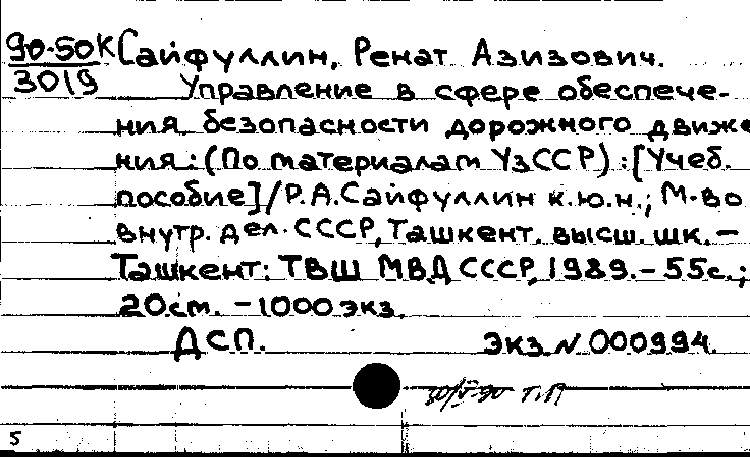 90-50К Сайфуллин, Ренат Азизович.
3019 Управление в сфере обеспече-
ния безопасности дорожного движе
ния : (По материалам УзССР) : [Учеб.
пособие] / Р.А.Сайфуллин к.ю.н.; М-во
внутр. дел. СССР, Ташкент. высш. шк. –
Ташкент: ТВШ МВД СССР, 1989. – 55с.;
20см. – 1000 экз.
ДСП. Экз N 000994.
5